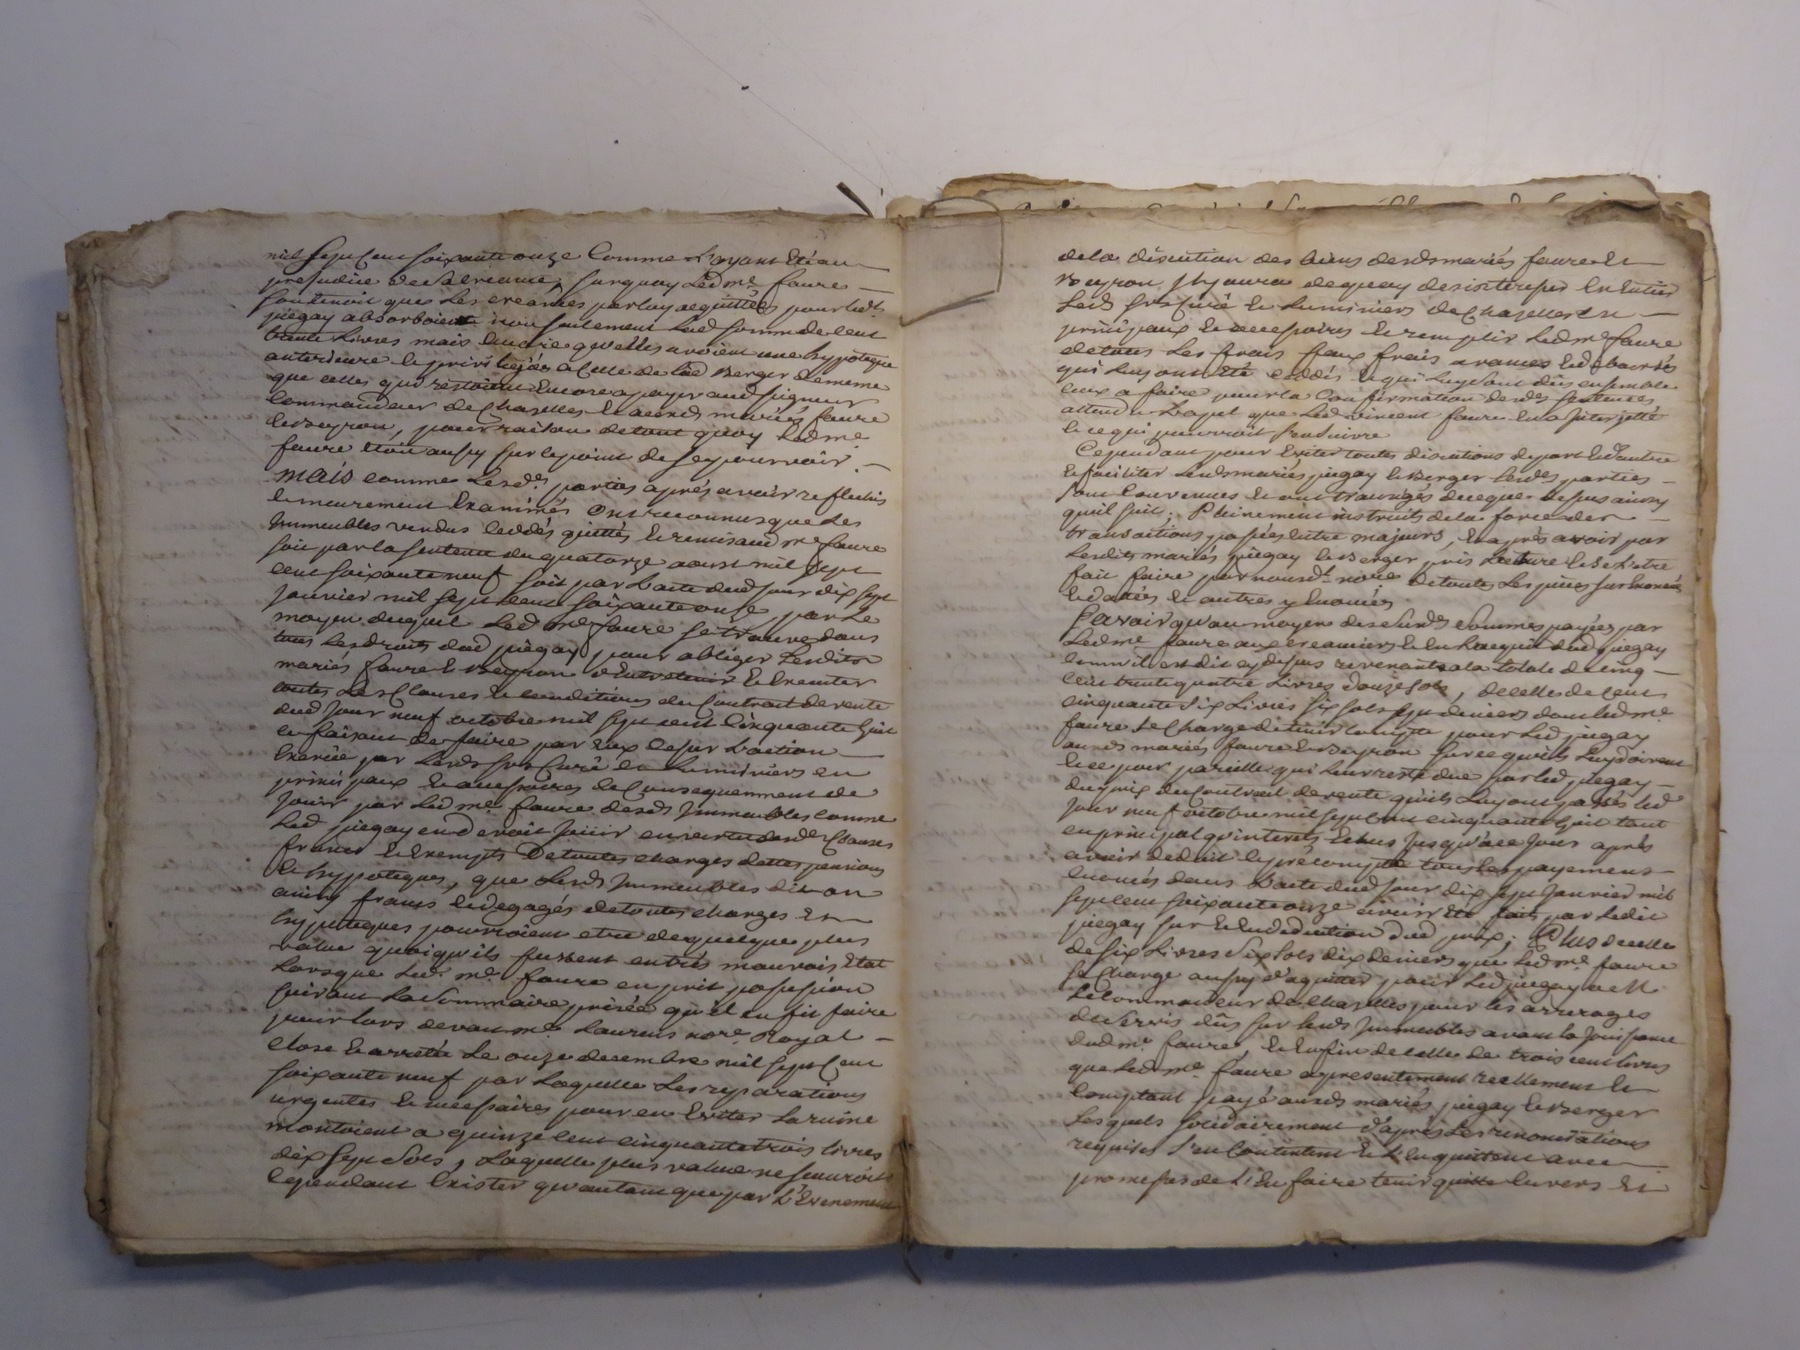 mil sept cent soixante onze Comme l'ayant Eté au
prejudice de sa creance, surquoy Led. me. faure
soutenoit que Les creances par luy acquittées pour led.
juëgay absorboient non seulement lad. somme de cent
trente Livres mais Encore qu'elles avoient une hypoteque
anterieure et privilegiée a Celle de lad. Berger de meme
que celles qui restoient Encore a payer aud. seigneur
Commandeur de Chazelles et auxds. mariés faure
et veyron, pour raison de tout quoy Led. me.
faure etoit aussy sur le point de se pourvoir.
Mais comme Lesds. parties aprés avoir reflechis
et meurement Examinés ont reconnus que Les
Immeubles vendus ceddés quittés et remis aud. me. faure
soit par la sentence du quatorze aoust mil sept
cent soixante neuf soit par L'acte dud. jour dix sept
janvier mil sept cent soixante onze, par Le
moyen duquel Led. me. faure se trouve dans
tous Les droits dud. juëgay pour obliger Lesdits
mariés faure et veyron a Entretenir et Executer
toutes Les Clauses et conditions du Contrat de vente
dud. jour neuf octobre mil sept cent cinquante huit
en faisant de faire par Eux cesser L'action
Exercée par Lesds. srs. Curé et Luminiers en
principaux et accessoires et Consequemment de
Jouir par Led. me. faure desds. Immeubles comme
Led. juëgay en devoit Jouir en vertu desds. Clauses
francs et Exempts de toutes charges dettes pensions
et hypoteques, que Lesds. Immeubles dit on
ainsy francs et degagés de toutes charges et
hypoteques pourroient etre de quelque plus
value quoiqu'ils fussent en trés mauvais Etat
Lorsque Led. me. faure en prit possession
suivant La Sommaire prisée qu'il en fit faire
pour lors devant me. Laurens nore. Royal
close et arretée Le onze decembre mil sept Cent
soixante neuf par Laquelle Les reparations
urgentes et necessaires pour en Eviter La ruine
montoient a quinze cent cinquante trois livres
dix sept sols, Laquelle plus value ne sauroit
cependant Exister qu'autant que par L'Evenement
de la discution des biens desds mariés faure et
veyron, Il y aura dequoy desinteresser En Entier
Lesds. srs. Curé et Luminiers de Chazelles En
principaux et accessoires et remplir Led. me. faure
de tous Les frais faux frais avances et deboursés
qui Luy ont Eté ceddés et qui Luy sont dus ensemble
ceux a faire pour la Confirmation desds. sentences
attendu L'apel que Led. vincent faure En a Interjetté
et ce qui pourroit s'ensuivre
Cependant pour Eviter toutes discutions de part et d'autre
et faciliter Lesds mariés juëgay et Berger Lesds. parties
sont Convenues et ont transigés de ce que dessus ainsy
qu'il suit. Pleinement instruits de la force des
transactions passées Entre majeurs, Et aprés avoir par
Lesdits mariés juëgay et Berger pris Lecture et se L'etre
fait faire par nousd. nore. de toutes Les pieces sus Enoncées
et datées et autres y Enoncées
Savoir qu'au moyen des susds. sommes payées par
Led. me. faure aux creanciers et En L'acquit dud. juëgay
comme il est dit cy dessus revenants a la totale de cinq
cent trente quatre Livres douze sols, de celle de Cent
cinquante six Livres six sols sept deniers dont Led. me.
faure se Charge de tenir Compte pour Led. juëgay
auxds mariés faure et veyron sur ce qu'ils Luy doivent
et ce pour pareille qui Leur reste due par led. juëgay
du prix du Contrat de vente qu'ils Luy ont passés led.
jour neuf octobre mil sept cent cinquante huit tant
en principal qu'interets Echus jusqu'a ce jour aprés
avoir deduit et précompté tous Les payements
Enoncés dans L'acte dud. jour dix sept Janvier mil
sept cent soixante onze avoir Eté faits par Ledit
juëgay sur et En deduction dud. prix; Plus de celle
de six Livres six sols dix deniers que Led. me. faure
se Charge aussy d'aquitter pour Led. juëgay a M
Le Commandeur de Chazelles pour les arrerages
de servis dus sur lesds. Immeubles avant la Jouissance
dud. me. faure, et Enfin de celle de trois cent livres
que Led. me. faure a presentement reellement et
Comptant payé auxds mariés juëgay et Berger
Lesquels solidairement d'aprés Les renonciations
requises s'en Contentent et L'en quittent avec
promesses de L'En faire tenir quitte Envers Et